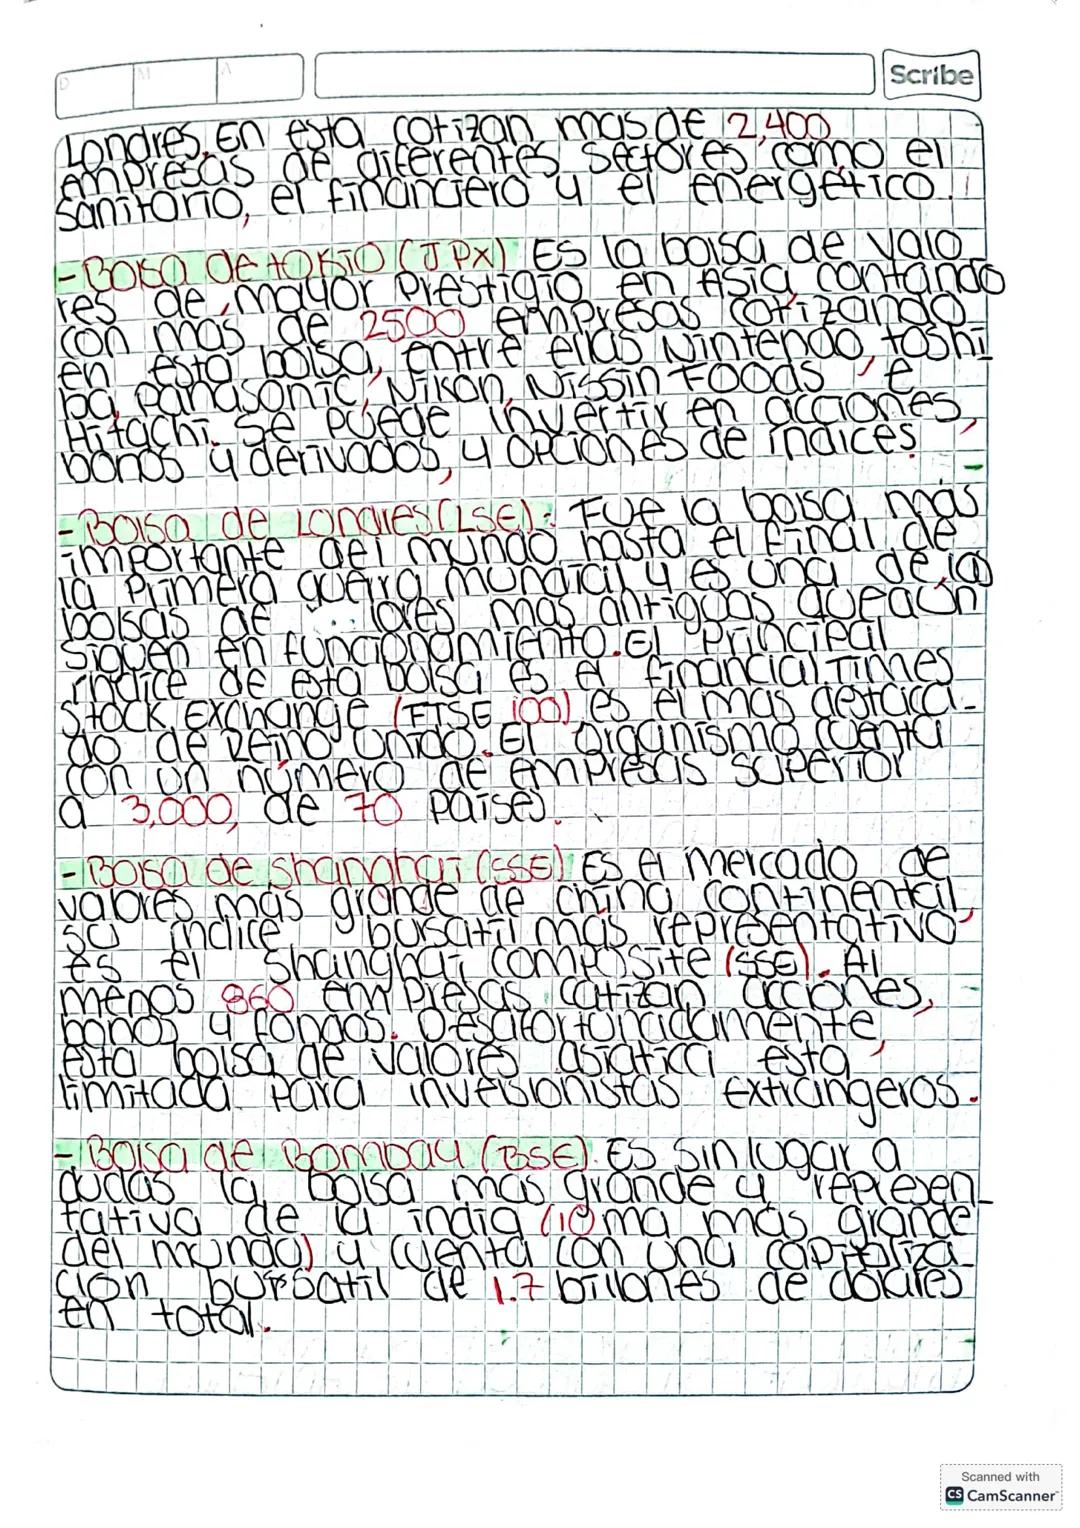 D M A
Scribe
Londres. En esta cotizan mas de 2,400
empresas de diferentes sectores como el
sanitario, el financiero y el energético.
- Bolsa de tokio (JPX) Es la bolsa de valo
res de mayor prestigio en Asia contando
con más de 2500 empresas cotizando
en esta bolsa, entre ellas Nintendo, toshi
ba, panasonic, Nikon, Nissin Foods, e
Hitachi. Se puede invertir en acciones,
bonos y derivados, y opciones de índices.
- Bolsa de Londres (LSE): Fue la bolsa más
importante del mundo hasta el final de
la primera guerra mundial y es una de las
bolsas de lores mas antiguas que aún
siguen en funcionamiento. El principal
índice de esta bolsa es el financial Times
Stock Exchange (FTSE 100) es el mas destaca-
do de Reino Unido. El organismo cuenta
con un número de empresas superior
a 3,000, de 70 países.
- Bolsa de shanghai (SSE) Es el mercado de
valores más grande de china continental,
su índice busatil más representativo
es el shanghai composite (SSE). Al
menos 860 empresas cotizan acciones,
bonos y fondos. Desafortunadamente,
esta bolsa de valores asiatica esta
limitada para inversionistas extrangeros.
- Bolsa de Bombay (BSE). Es sin lugar a
dudas la bolsa mas grande y represen-
tativa de la india (10ma más grande
del mundo) y cuenta con una capitaliza
ción bursatil de 1.7 billones de dólares
en total.
Scanned with
CS CamScanner